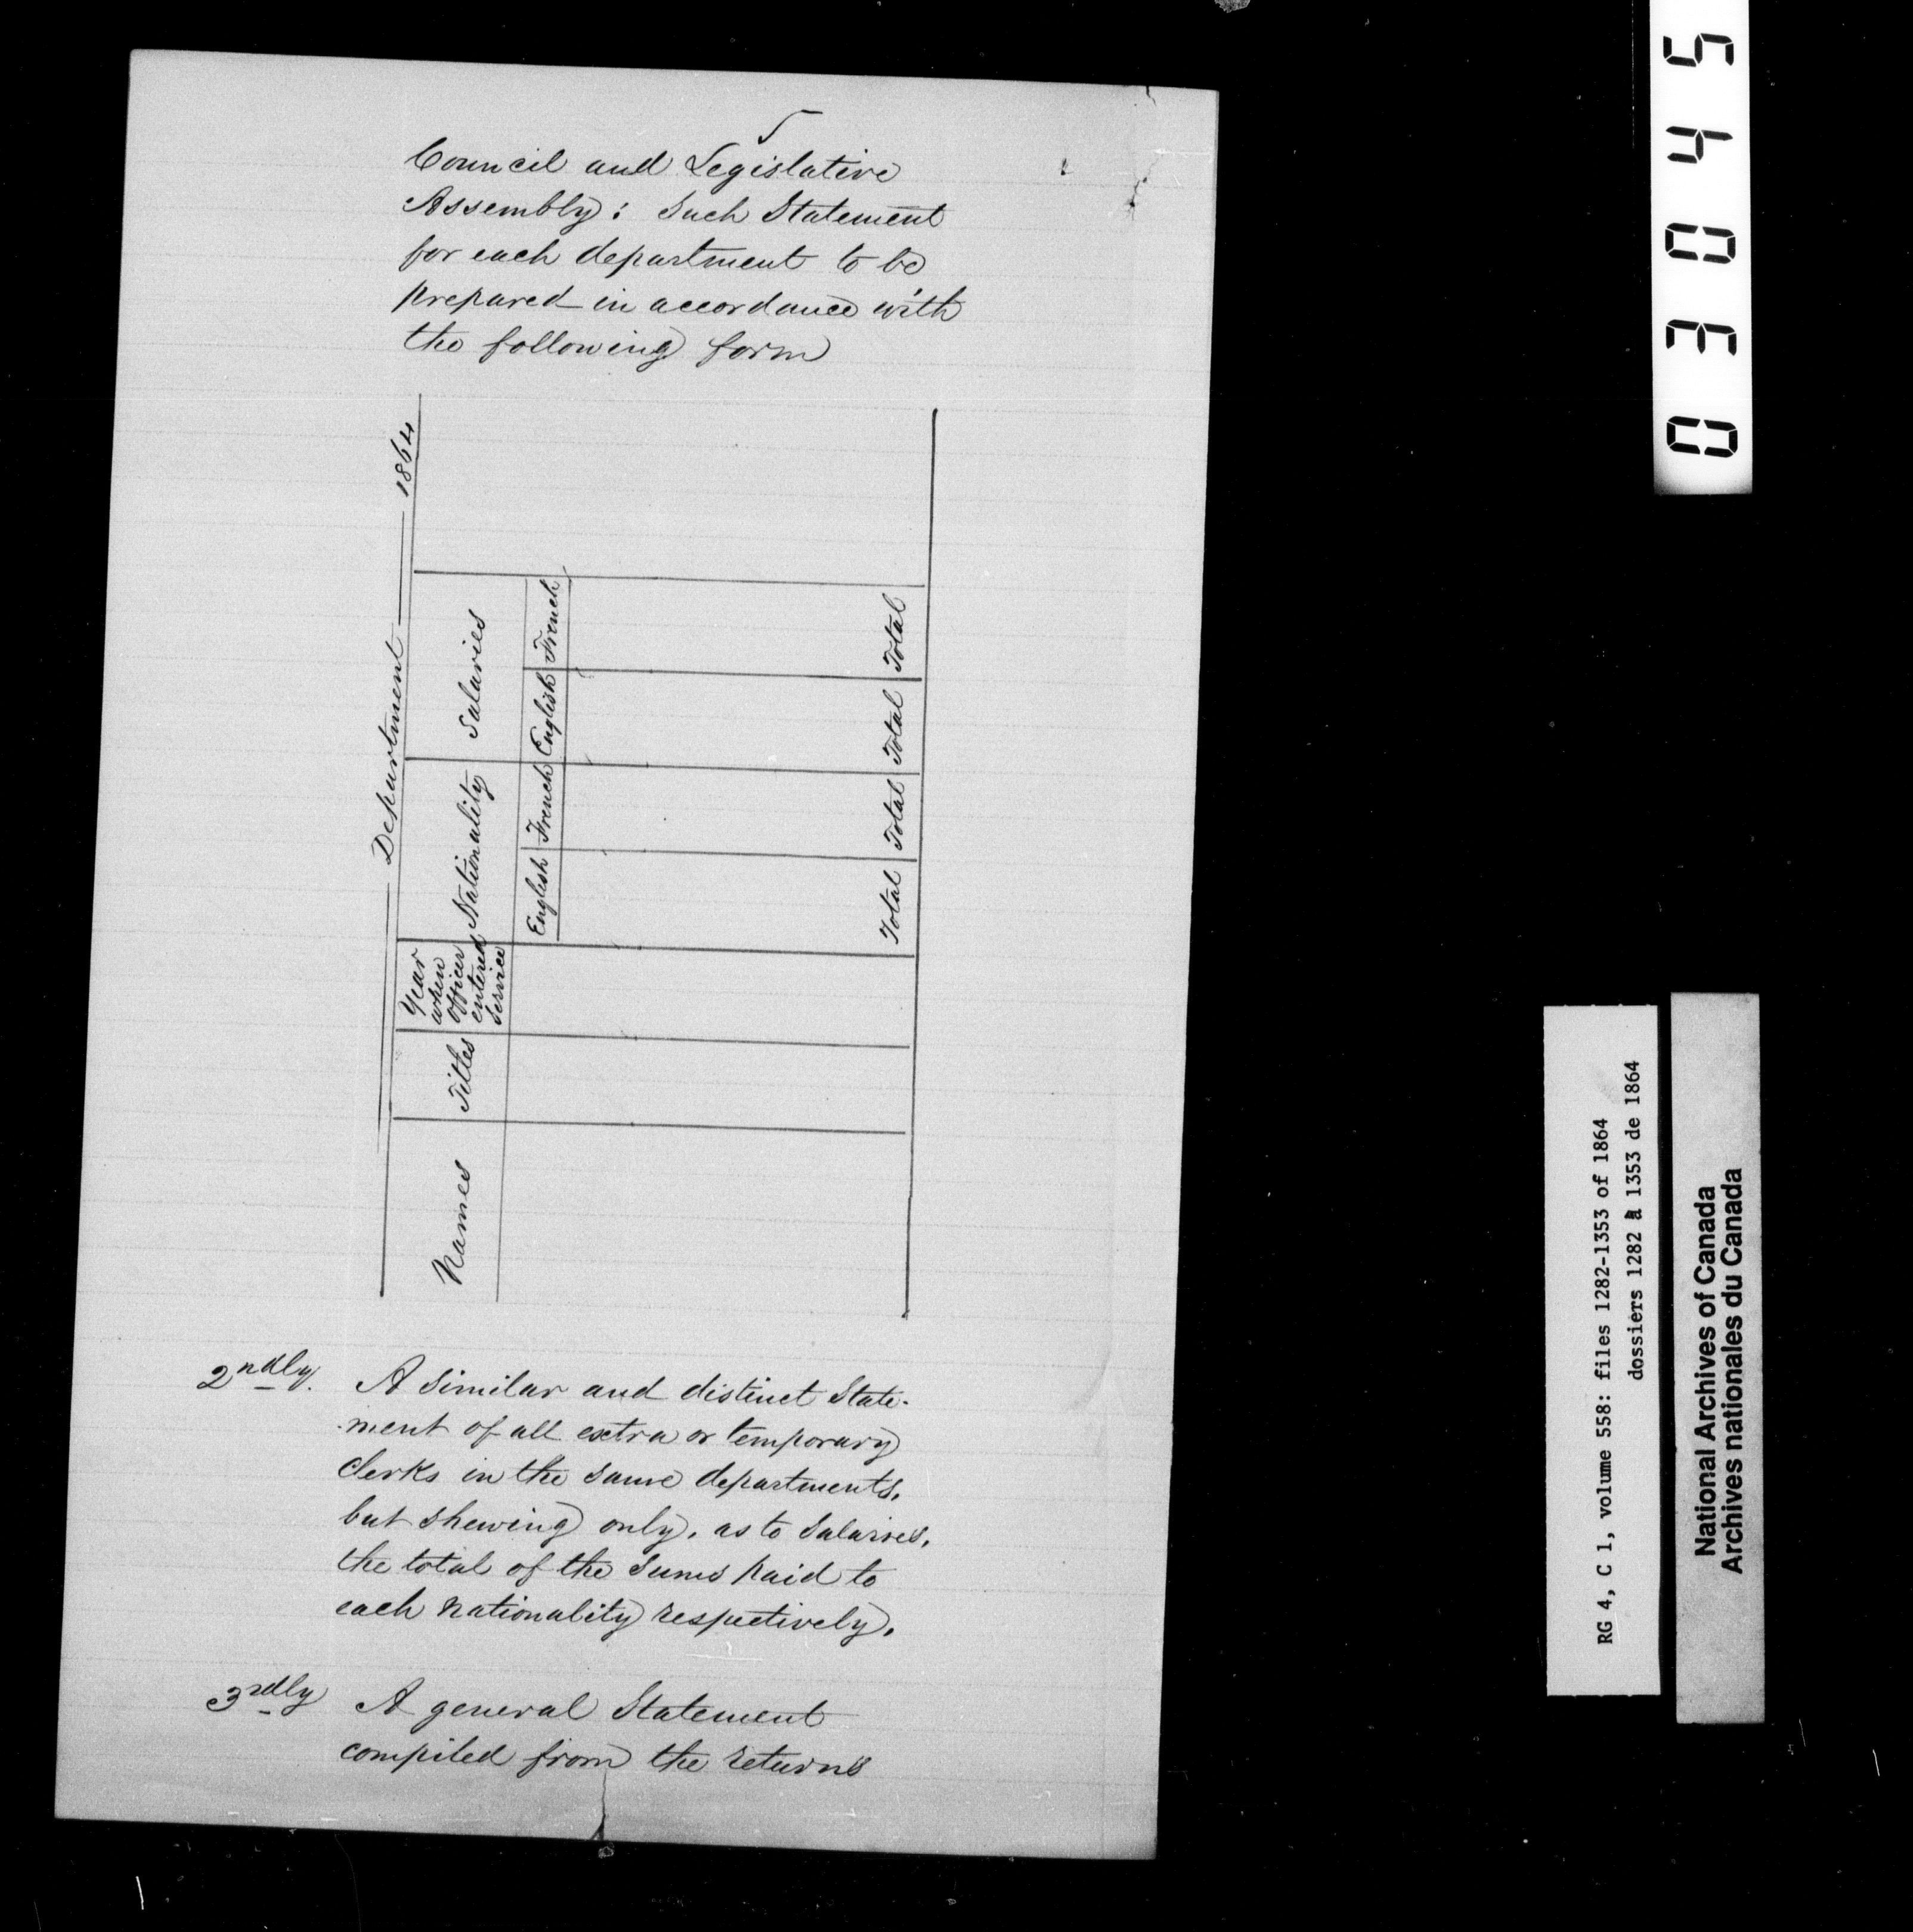 5
Council and Legislative
Assembly: Such Statement
for each department to be
prepared in accordance with
the following form
Department 1864
Names
Titles
Year
when
officer
entered
service
Nationality
Salaries
English
French
English
French
Total
Total
Total
Total
2ndly. A similar and distinct State-
-ment of all extra or temporary
clerks in the same departments,
but shewing only, as to Salaries,
the total of the sums paid to
each nationality respectively.
3rdly A general Statement
compiled from the returns
03045
RG 4, C 1, volume 558: files 1282-1353 of 1864
dossiers 1282 à 1353 de 1864
National Archives of Canada
Archives nationales du Canada